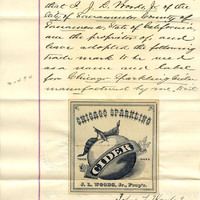 that I J. L. Woods Jr. of the
City of Sacramento County of
Sacramento, State of California
am the proprietor of, and
have adopted the following
trade mark to be used
as a name and label
for Chicago Sparkling Cider
manufactured by me, to wit
CHICAGO SPARKLING
CIDER
J. L. WOODS, Jr., Prop'r.